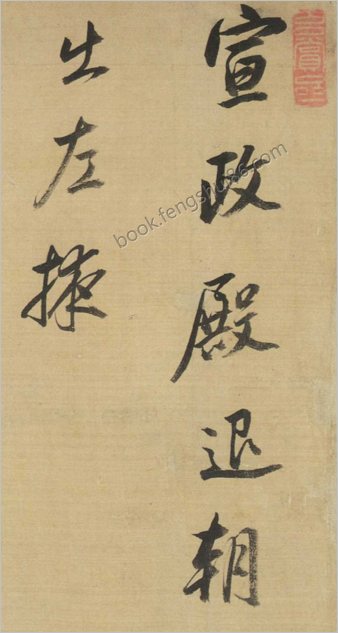 宣政殿退朝
出左掖
book.fengshu86.com